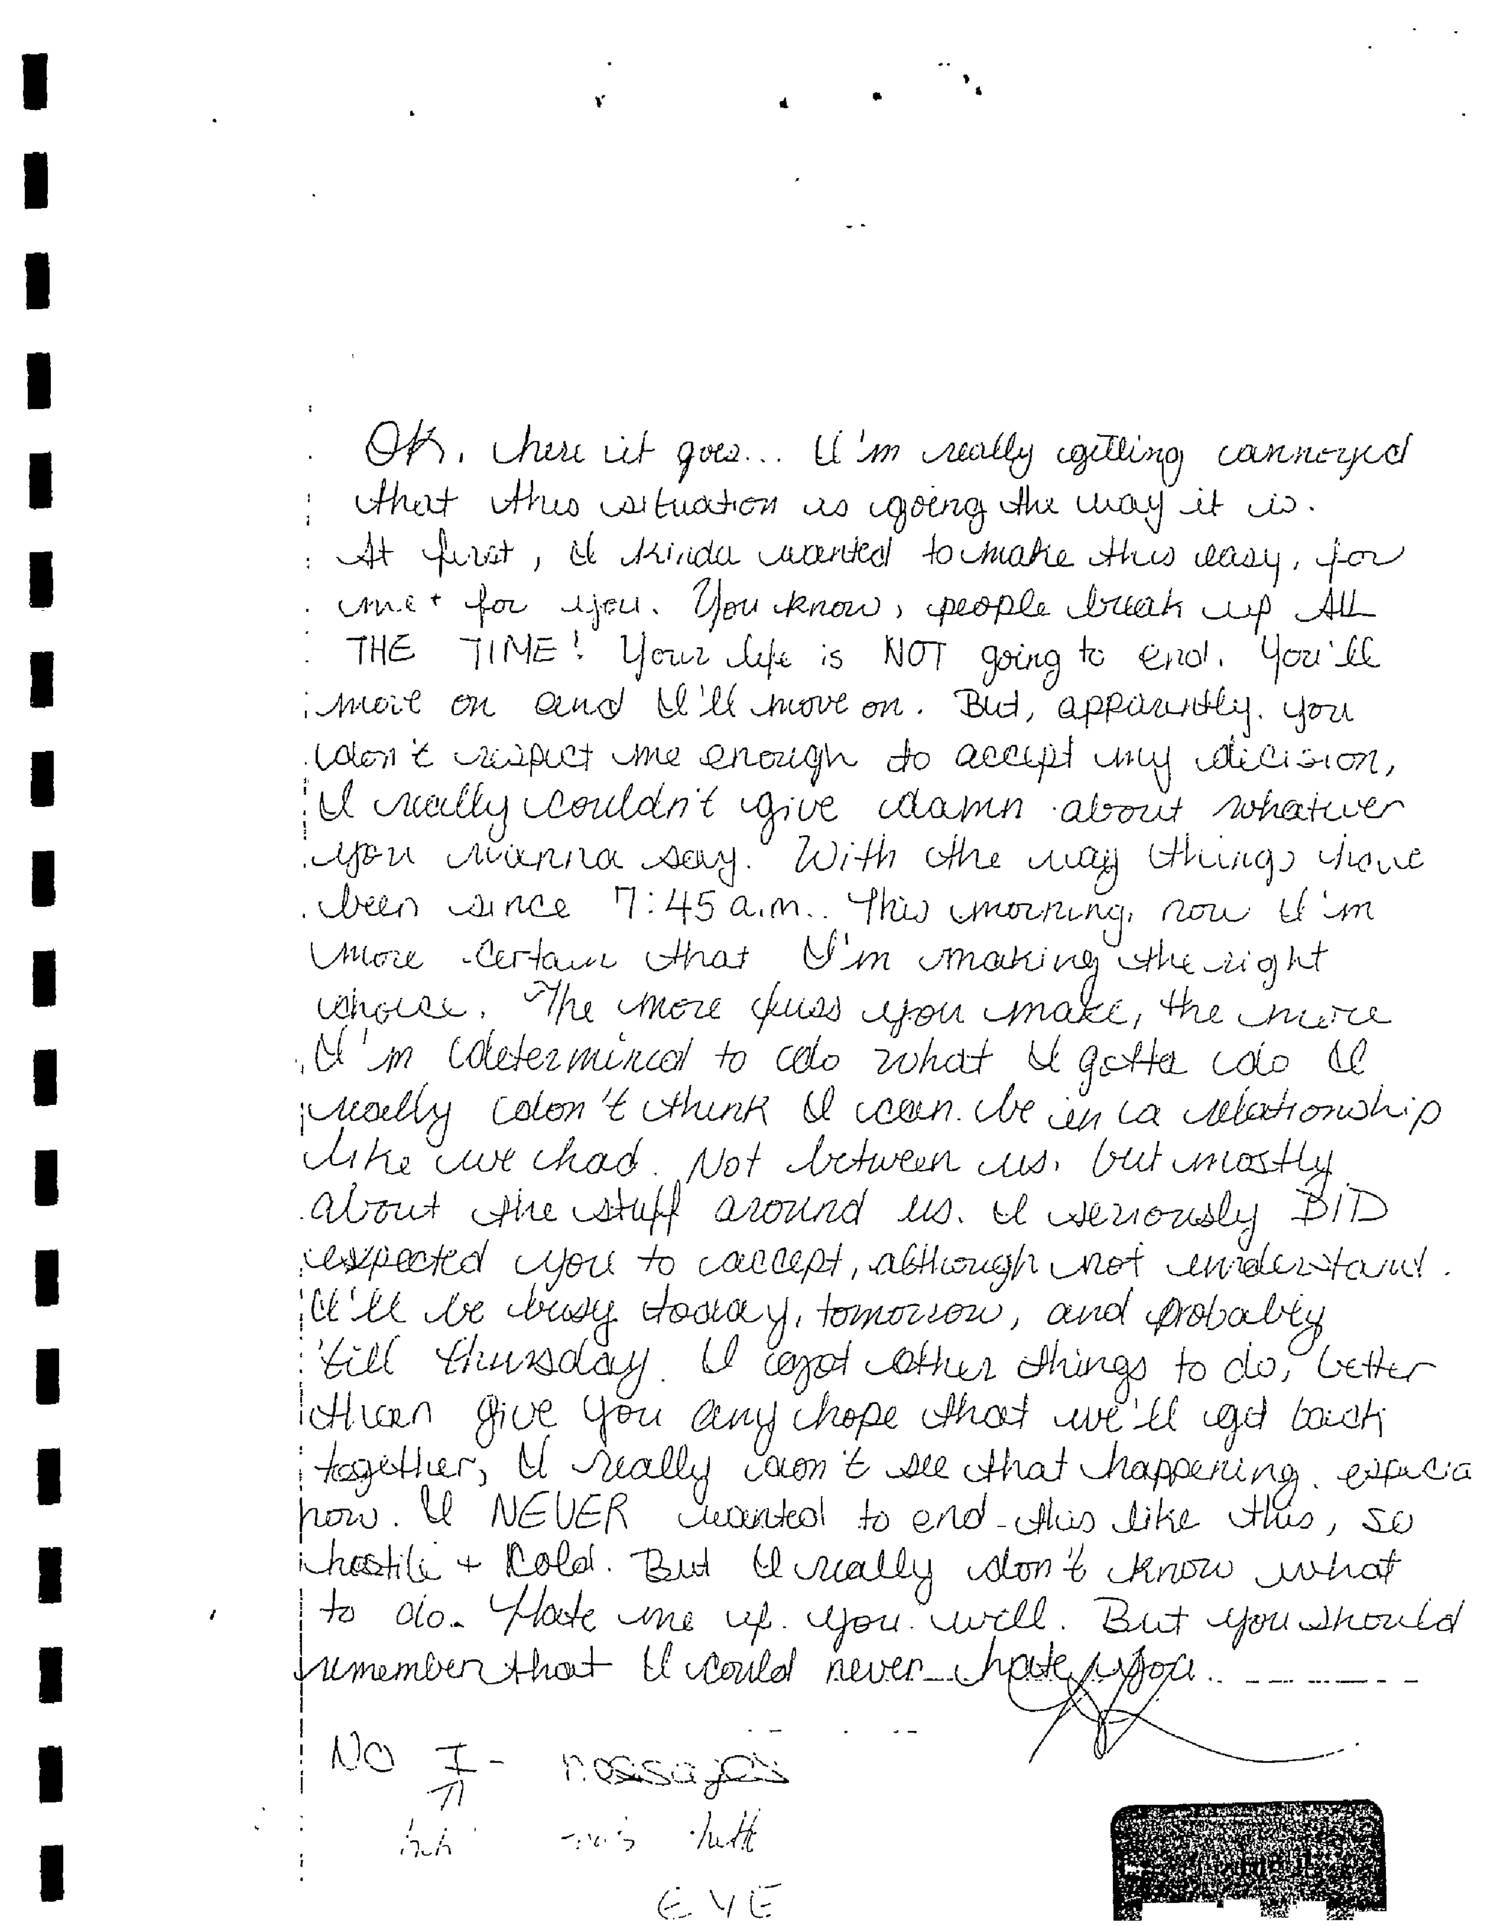 OK, here it goes... I'm really getting annoyed
that this situation is going the way it is.
At first, I kinda wanted to make this easy, for
me + for you. You know, people break up ALL
THE TIME! Your life is NOT going to end. You'll
move on and I'll move on. But, apparently, you
don't respect me enough to accept my decision,
I really couldn't give damn about whatever
you wanna say. With the way things have
been since 7:45 a.m.. This morning, now I'm
more certain that I'm making the right
choice. The more fuss you make, the more
I'm determined to do what I gotta do I
really don't think I can be in a relationship
like we had. Not between us, but mostly
about the stuff around us. I seriously DID
expected you to accept, although not understand.
I'll be busy today, tomorrow, and probably
'till thursday. I got other things to do, better
than give you any hope that we'll get back
together, I really don't see that happening. especia
now. I NEVER wanted to end this like this, so
hostile + cold. But I really don't know what
to do. Hate me if you will. But you should
remember that I could never hate you.
NO I- messages
EVE